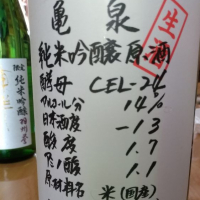 亀泉
生酒
純米吟醸原酒
酵母 CEL-24
アルコール分 14%
日本酒度 -13
酸度 1.7
アミノ酸 1.1
原材料名 米(国産)
純米吟醸